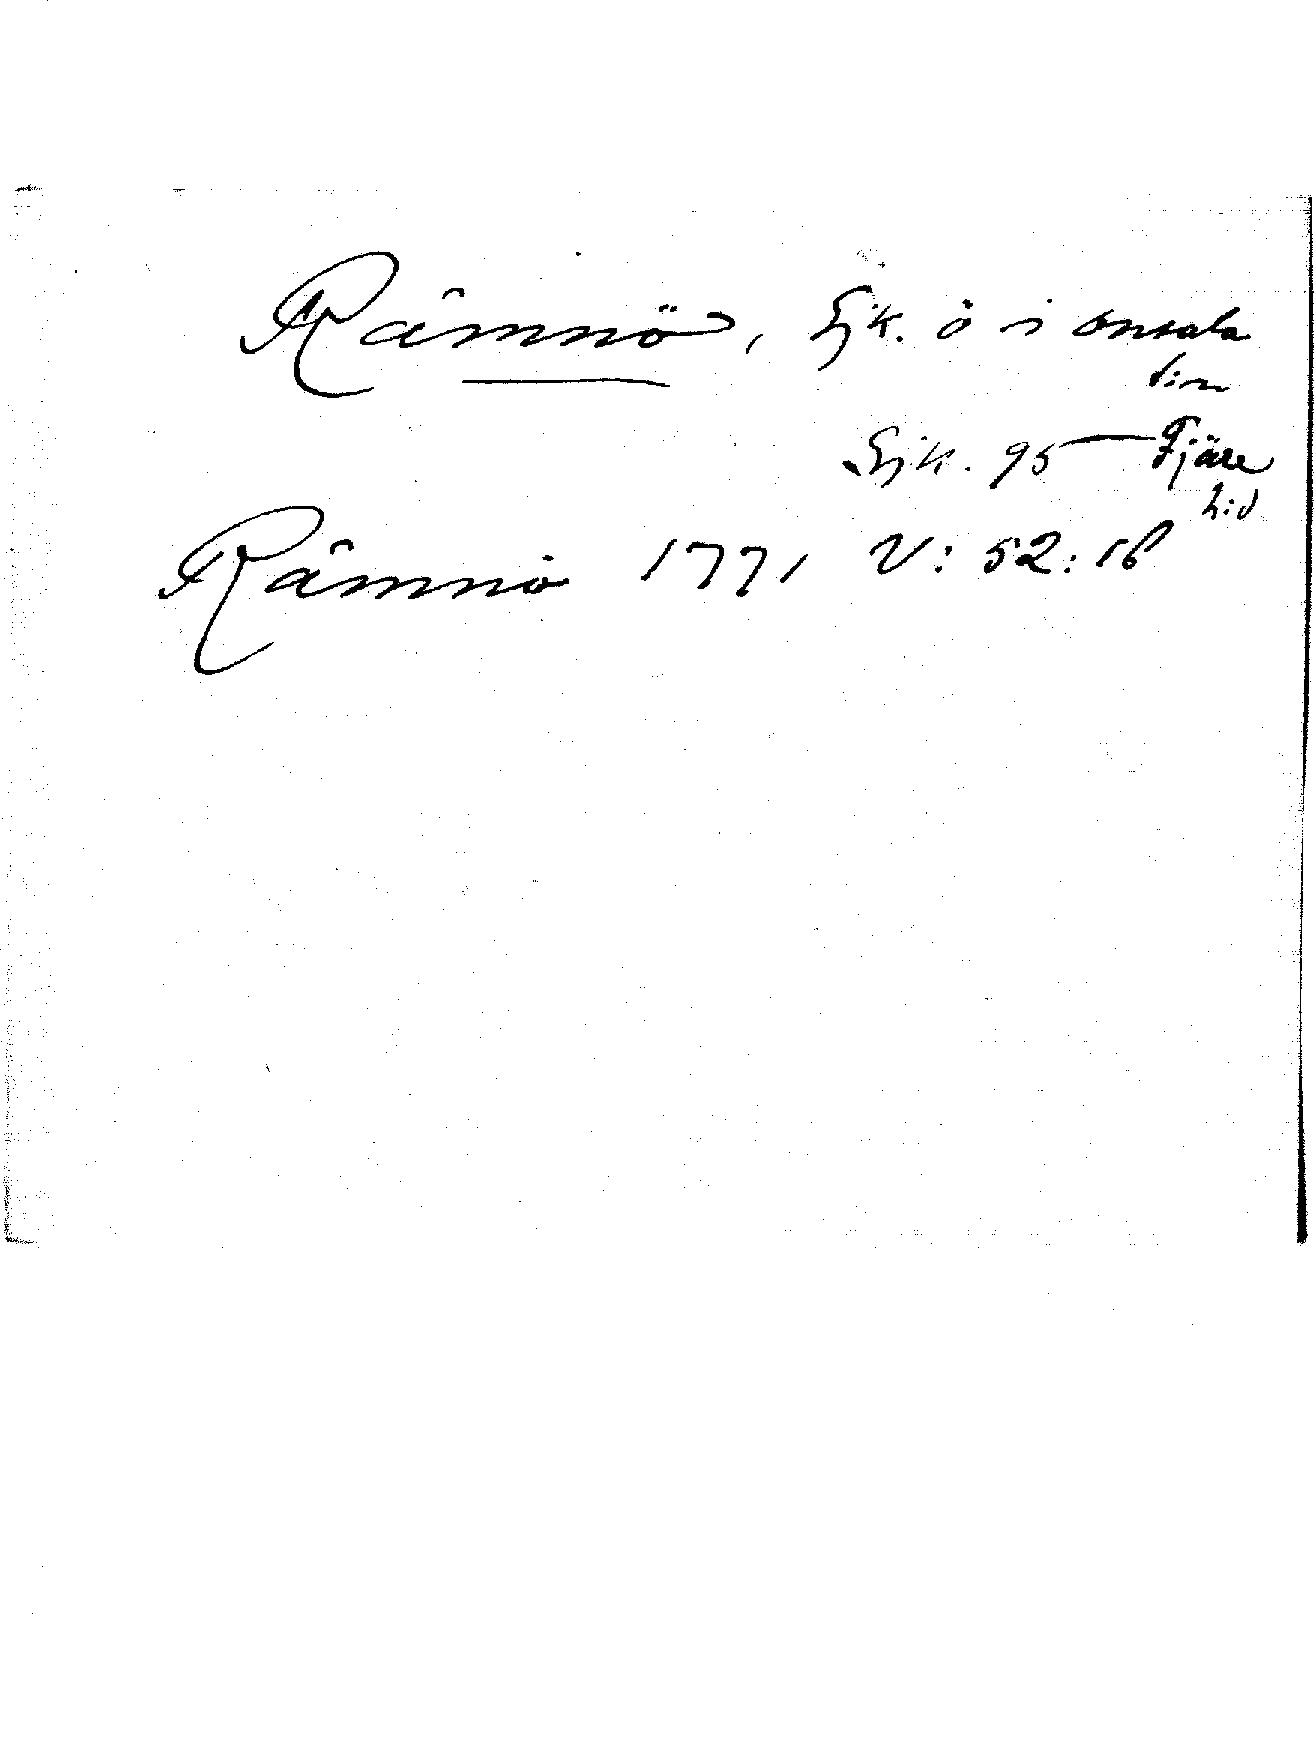 Råmnö, Sjk. ö i Onsala
s:n
Sjk. 95 — Fjäre
h:d
Råmnö 1771 V: 52: 16